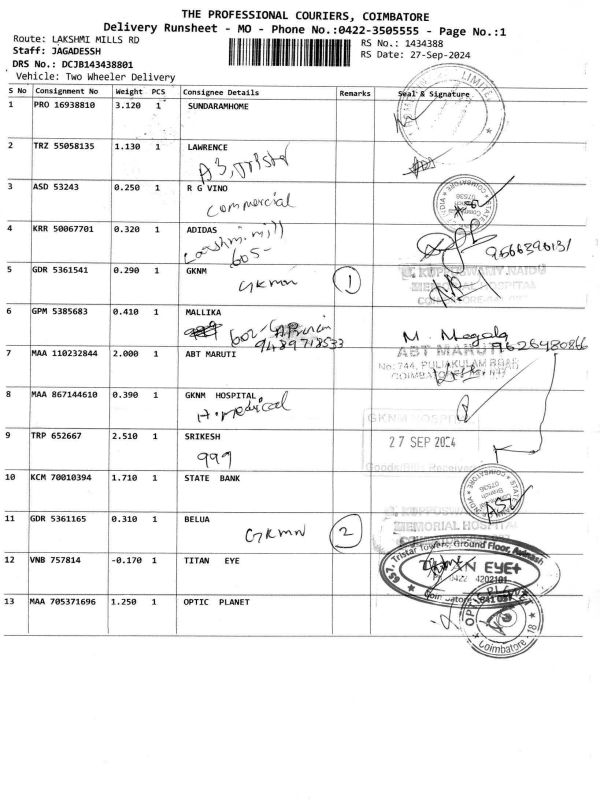 THE PROFESSIONAL COURIERS, COIMBATORE
Delivery Runsheet - MO - Phone No.:0422-3505555 - Page No.:1
Route: LAKSHMI MILLS RD
RS No.: 1434388
Staff: JAGADESSH
RS Date: 27-Sep-2024
DRS No.: DCJB143438801
Vehicle: Two Wheeler Delivery
S No Consignment No Weight PCS Consignee Details Remarks Seal & Signature
1 PRO 16938810 3.120 1 SUNDARAMHOME
2 TRZ 55058135 1.130 1 LAWRENCE
A3, Tristar
3 ASD 53243 0.250 1 R G VINO
commercial
4 KRR 50067701 0.320 1 ADIDAS
605-
5 GDR 5361541 0.290 1 GKNM
GKMN 1
KUPPUSWAMY NAIDU
MEMORIAL HOSPITAL
6 GPM 5385683 0.410 1 MALLIKA
602-
9489718533
M. Megala
9626480866
7 MAA 110232844 2.000 1 ABT MARUTI
ABT MARUTI
No: 744, PULIAKULAM ROAD
8 MAA 867144610 0.390 1 GKNM HOSPITAL
H. medical
GKNM HOSPITAL
27 SEP 2024
Goods/Bills Received
9 TRP 652667 2.510 1 SRIKESH
999
10 KCM 70010394 1.710 1 STATE BANK
11 GDR 5361165 0.310 1 BELUA
GKMN 2
KUPPUSWAMY
MEMORIAL HOSPITAL
12 VNB 757814 -0.170 1 TITAN EYE
657, Tristar Towers, Ground Floor, Avinash
EYE+
0422 4202101
13 MAA 705371696 1.250 1 OPTIC PLANET
Coimbatore - 18